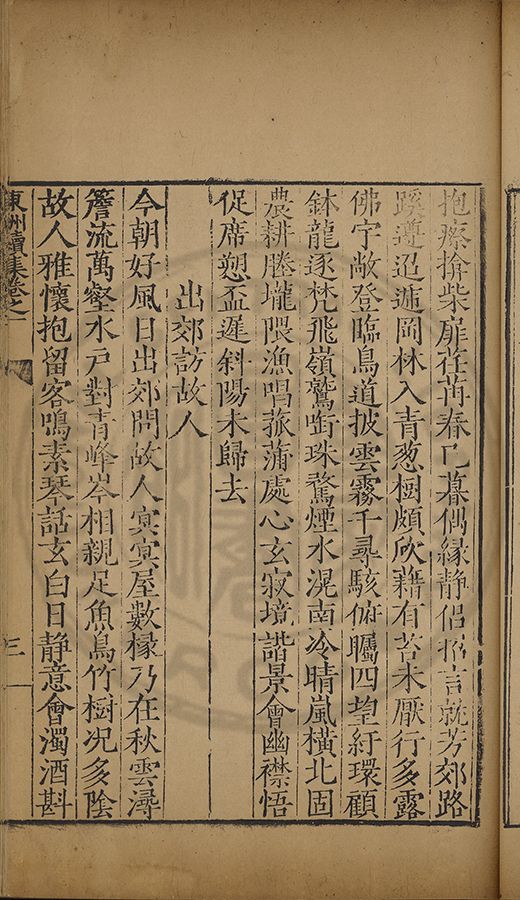 抱瘵揜柴扉荏苒春已暮偶緣靜侶招言就芳郊路
蹊遵迢遞岡林入青葱樹頗欣藉有苔未厭行多露
佛宇敞登臨鳥道披雲霧千尋駭俯矚四望紆環顧
鉢龍逐梵飛嶺鷲銜珠騖煙水滉南泠晴嵐橫北固
農耕塍壠隈漁唱菰蒲處心玄寂境諧景會幽襟悟
促席愬盃遲斜陽未歸去
出郊訪故人
今朝好風日出郊問故人寞寞屋數椽乃在秋雲潯
簷流萬壑水戶對青峰岑相親足魚鳥竹樹况多陰
故人雅懷抱留客鳴素琴話玄白日靜意會濁酒斟
東洲續集卷之一
三